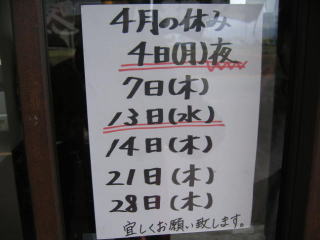 4月の休み
4日(月)夜
7日(木)
13日(水)
14日(木)
21日(木)
28日(木)
宜しくお願い致します。